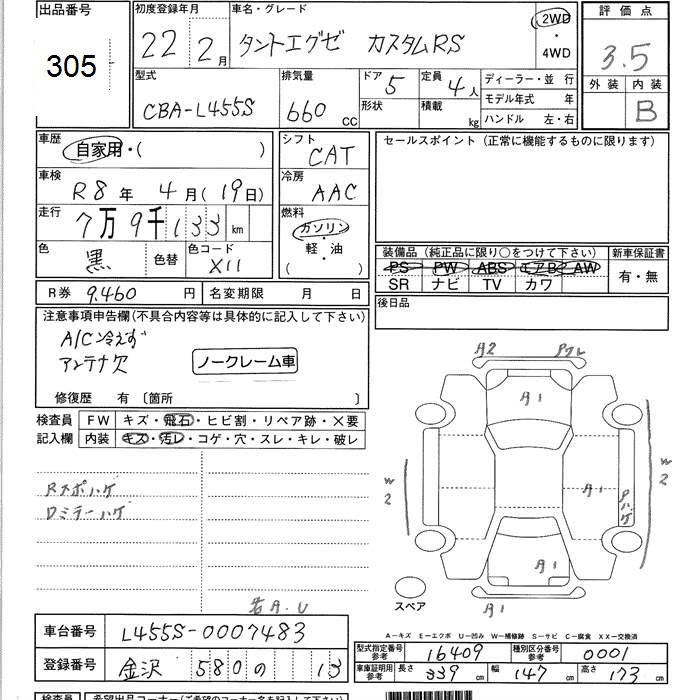 出品番号 初度登録年月 車名・グレード 評価点
305 22 2月 タントエグゼ カスタムRS 2WD・4WD 3.5
型式 排気量 ドア 5 定員 4人 ディーラー・並行 外装 内装
CBA-L455S 660cc 形状 積載 kg モデル年式 年 B
ハンドル 左・右
車歴 自家用・( ) シフト CAT セールスポイント (正常に機能するものに限ります)
車検 R8年 4月(19日) 冷房 AAC
走行 7万9千133km 燃料 ガソリン・軽・油 ( )
色 黒 色替 色コード X11
装備品 (純正品に限り○をつけて下さい) 新車保証書
PS PW ABS エアB AW 有・無
SR ナビ TV カワ
R券 9,460円 名変期限 月 日 後日品
注意事項申告欄(不具合内容等は具体的に記入して下さい)
A/C冷えず
アンテナ欠 ノークレーム車
修復歴 有 〔箇所 〕
検査員 FW キズ・飛石・ヒビ割・リペア跡・X要
記入欄 内装 キズ・汚レ・コゲ・穴・スレ・キレ・破レ
Rスポハゲ
Dミラーハゲ
A2
A1
W2
A1
Pハゲ
W2
A1
A1
スペア
若A.U
A-キズ E-エクボ U-凹み W-補修跡 S-サビ C-腐食 XX-交換済
車台番号 L455S-0007483
型式指定番号 16409 種別区分番号 0001
登録番号 金沢 580 の 13
車庫証明用参考 長さ 339cm 幅 147cm 高さ 173cm
検査員 希望出品コーナー(ご希望のコーナー名を記入下さい)